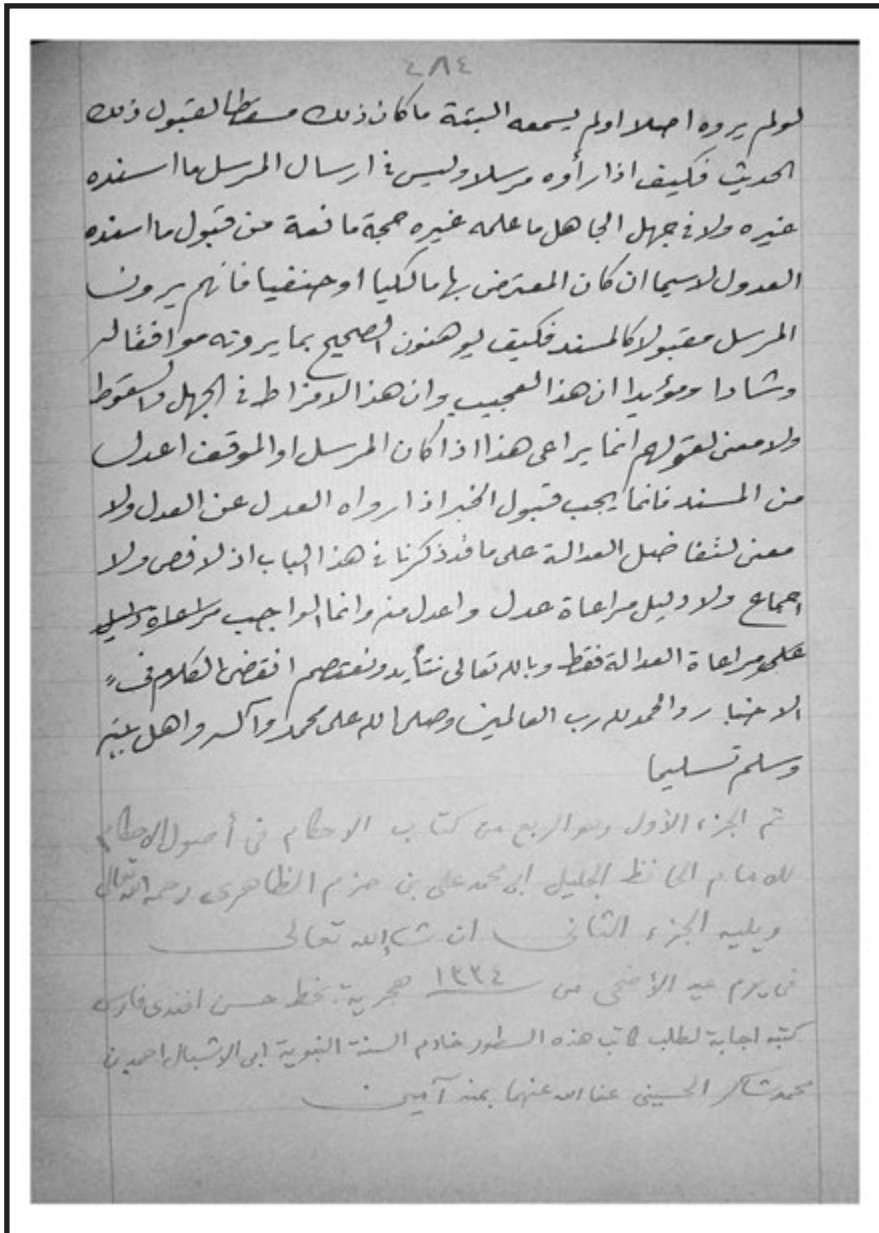 ٤٨٤
لو لم يروه اصلا او لم يسمعه البتة ما كان ذلك مسقطا لقبول ذلك
الحديث فكيف اذا رأوه مرسلا وليس في ارسال المرسل ما اسنده
غيره ولا في جهل الجاهل ما علمه غيره حجة مانعة من قبول ما اسنده
العدول لاسيما ان كان المعترض بها مالكيا او حنفيا فانهم يرون
المرسل مقبولا كالمسند فكيف يوهنون الصحيح بما يرونه موافقا له
وشادا ومؤيدا ان هذا لعجيب وان هذا لافراط في الجهل والسقوط
ولا معنى لقولهم انما يراعى هذا اذا كان المرسل او الموقف اعدل
من المسند فانما يجب قبول الخبر اذا رواه العدل عن العدل ولا
معنى لتفاضل العدالة على ما قد ذكرنا في هذا الباب اذ لا نص ولا
اجماع ولا دليل مراعاة عدل واعدل منه وانما الواجب مراعاة
مراعاة العدالة فقط وبالله تعالى نتأيد ونعتصم انقضى الكلام في
الاخبار والحمد لله رب العالمين وصلى الله على محمد وآله واهل بيته
وسلم تسليما
تم الجزء الأول وهو الربع من كتاب الاحكام في أصول الاحكام
للامام الحافظ الجليل ابى محمد على بن حزم الظاهرى رحمه الله تعالى
ويليه الجزء الثانى ان شاء الله تعالى
فى يوم عيد الأضحى من ١٣٣٤ هجرية بخط حسن افندى
كتبه اجابة لطلب كاتب هذه السطور خادم السنة النبوية ابى الاشبال احمد بن
محمد شاكر الحسينى عفا الله عنهما بمنه آمين